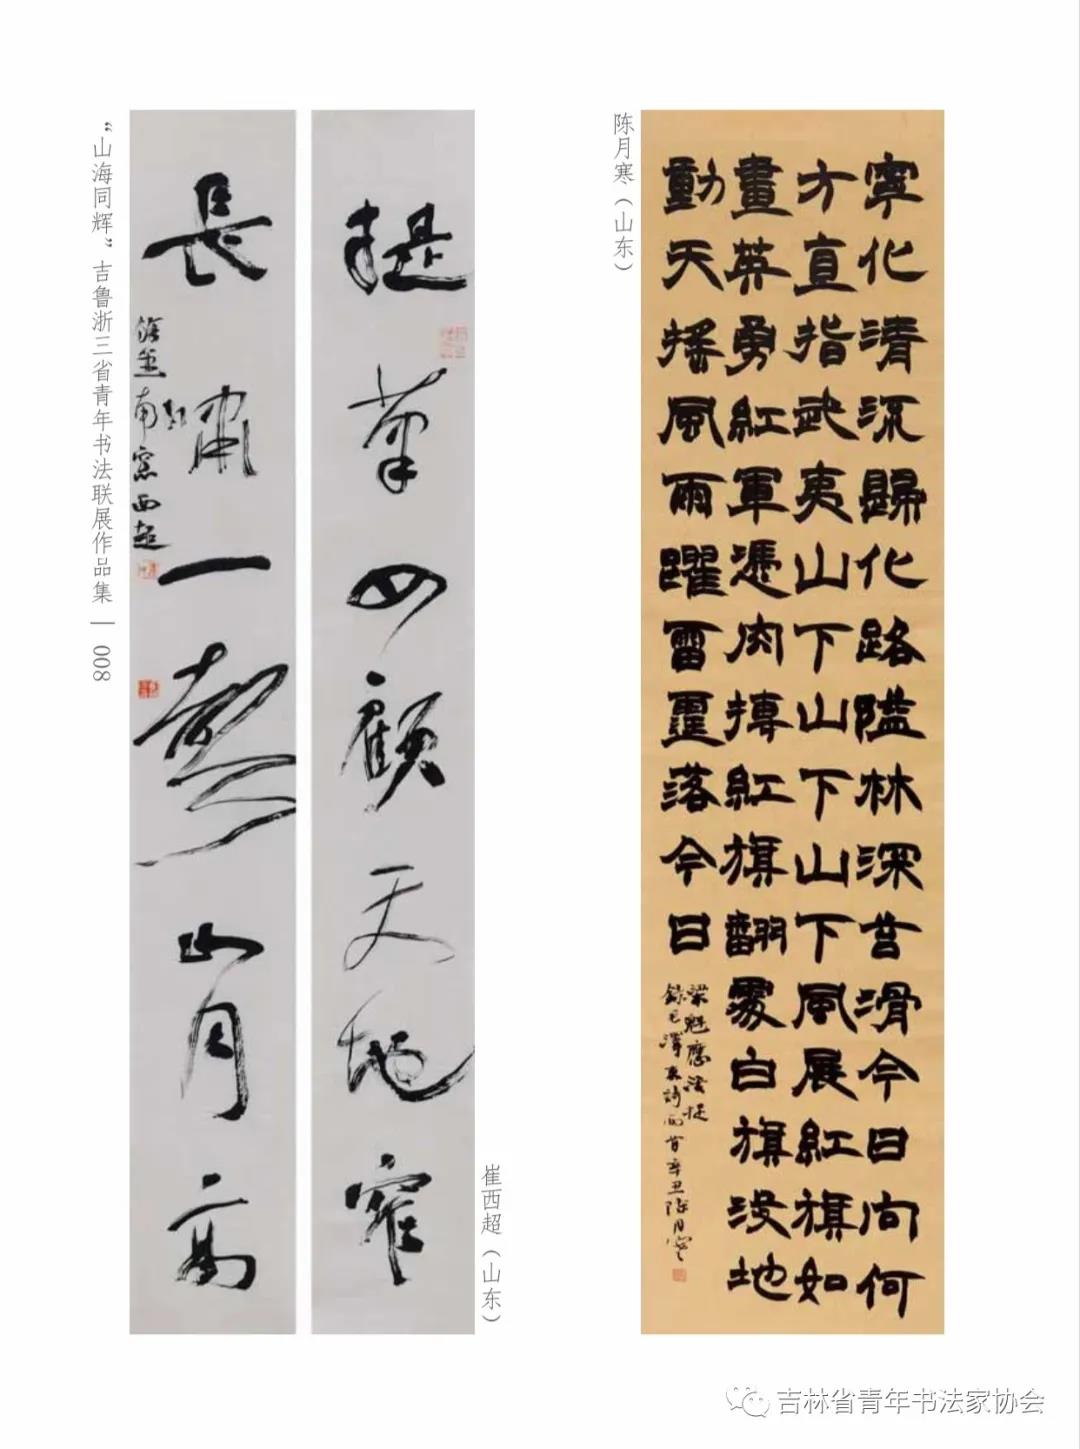 陈月寒（山东）
寧化清流歸化路隘林深苔滑今日向何
方直指武夷山下山下山下風展紅旗如
畫英勇紅軍憑肉搏紅旗翻處白旗沒地
動天搖風雨躍雷霆落今日
錄毛澤東詩兩首辛丑陳月寒
提筆四顧天地窄
長嘯一聲山月高
南窯西超
崔西超（山东）
“山海同辉”吉鲁浙三省青年书法联展作品集 | 008
吉林省青年书法家协会